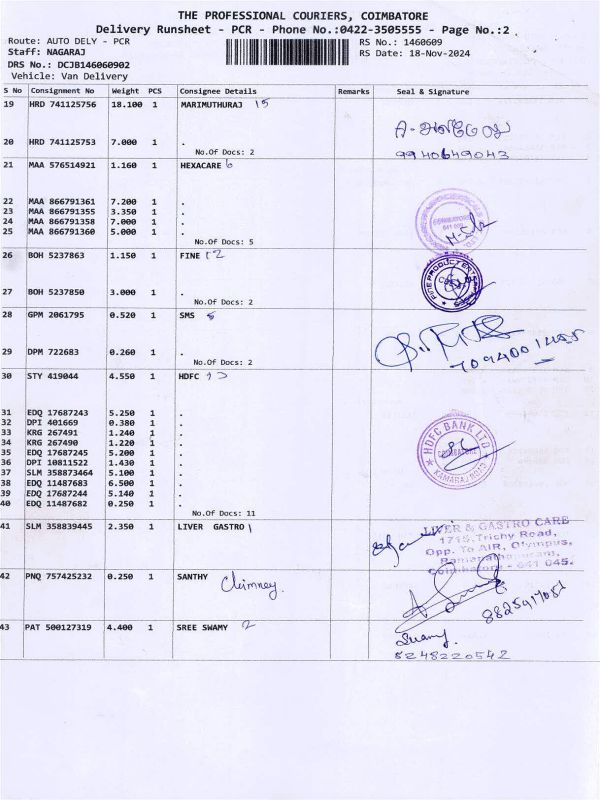 THE PROFESSIONAL COURIERS, COIMBATORE
Delivery Runsheet - PCR - Phone No.:0422-3505555 - Page No.:2
Route: AUTO DELY - PCR
RS No.: 1460609
Staff: NAGARAJ
RS Date: 18-Nov-2024
DRS No.: DCJB146060902
Vehicle: Van Delivery
S No Consignment No Weight PCS Consignee Details Remarks Seal & Signature
19 HRD 741125756 18.100 1 MARIMUTHURAJ 15
20 HRD 741125753 7.000 1 .
No.Of Docs: 2
9940649043
21 MAA 576514921 1.160 1 HEXACARE 6
22 MAA 866791361 7.200 1 .
23 MAA 866791355 3.350 1 .
24 MAA 866791358 7.000 1 .
25 MAA 866791360 5.000 1 .
No.Of Docs: 5
COIMBATORE
26 BOH 5237863 1.150 1 FINE 12
27 BOH 5237850 3.000 1 .
No.Of Docs: 2
28 GPM 2061795 0.520 1 SMS 5
29 DPM 722683 0.260 1 .
No.Of Docs: 2
30 STY 419044 4.550 1 HDFC
31 EDQ 17687243 5.250 1 .
32 DPI 401669 0.380 1 .
33 KRG 267491 1.240 1 .
34 KRG 267490 1.220 1 .
35 EDQ 17687245 5.200 1 .
36 DPI 10811522 1.430 1 .
37 SLM 358873464 5.100 1 .
38 EDQ 11487683 6.500 1 .
39 EDQ 17687244 5.140 1 .
40 EDQ 11487682 0.250 1 .
No.Of Docs: 11
HDFC BANK LTD
COIMBATORE
KAMARAJ ROAD
41 SLM 358839445 2.350 1 LIVER GASTRO 1
LIVER & GASTRO CARE
1715, Trichy Road,
Opp. To AIR, Olympus,
Ramanathapuram,
Coimbatore - 641 045.
42 PNQ 757425232 0.250 1 SANTHY
Chimney.
43 PAT 500127319 4.400 1 SREE SWAMY 2
Swamy.
8248220542